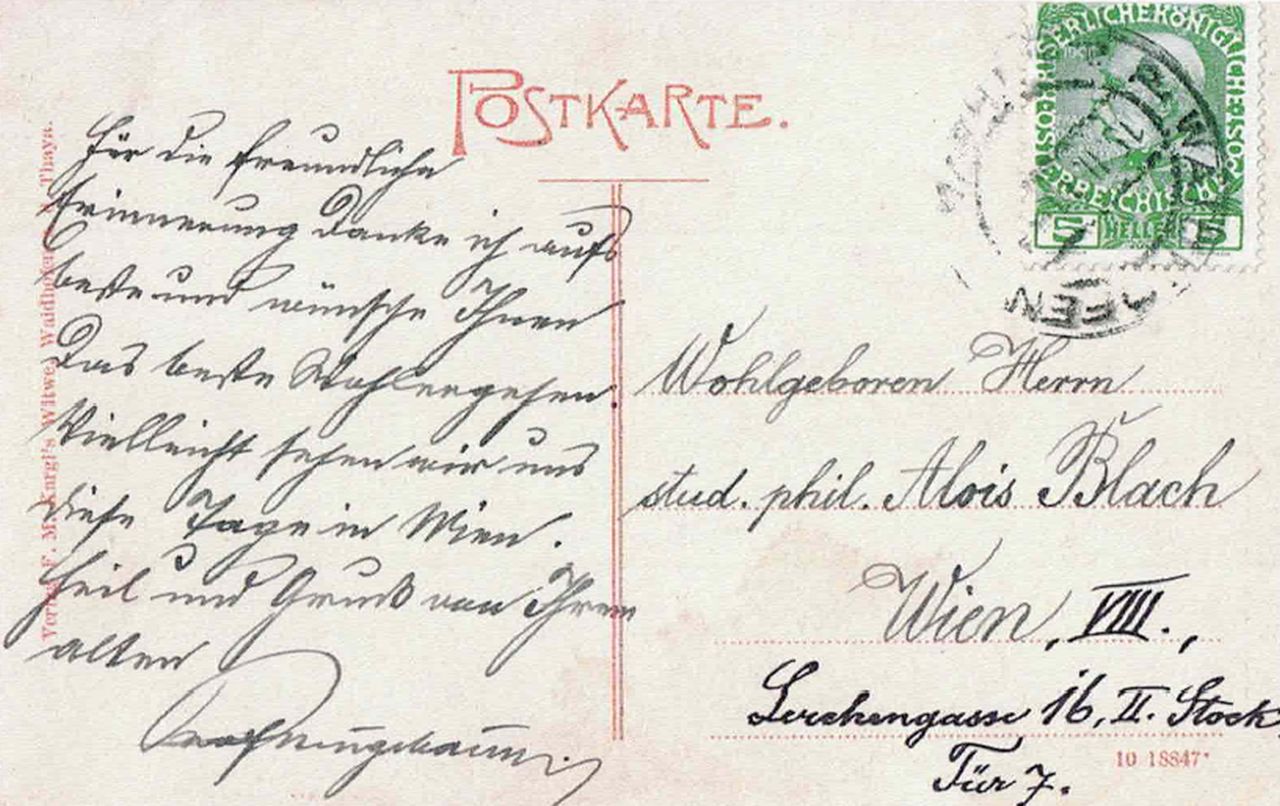 POSTKARTE.
Für die freundliche
Erinnerung danke ich aufs
beste und wünsche Ihnen
das beste Wohlergehen
Vielleicht sehen wir uns
diese Tage in Wien.
Heil und Gruß von Ihrem
alten
Verlag F. M. Kargl's Witwe, Waidhofen a. d. Thaya.
KAISERLICHE KÖNIGLICHE ÖSTERREICHISCHE
1908
5 HELLER 5
Wohlgeboren Herrn
stud. phil. Alois Blach
Wien, VIII.,
Lerchengasse 16, II. Stock
Tür 7.
10 18847